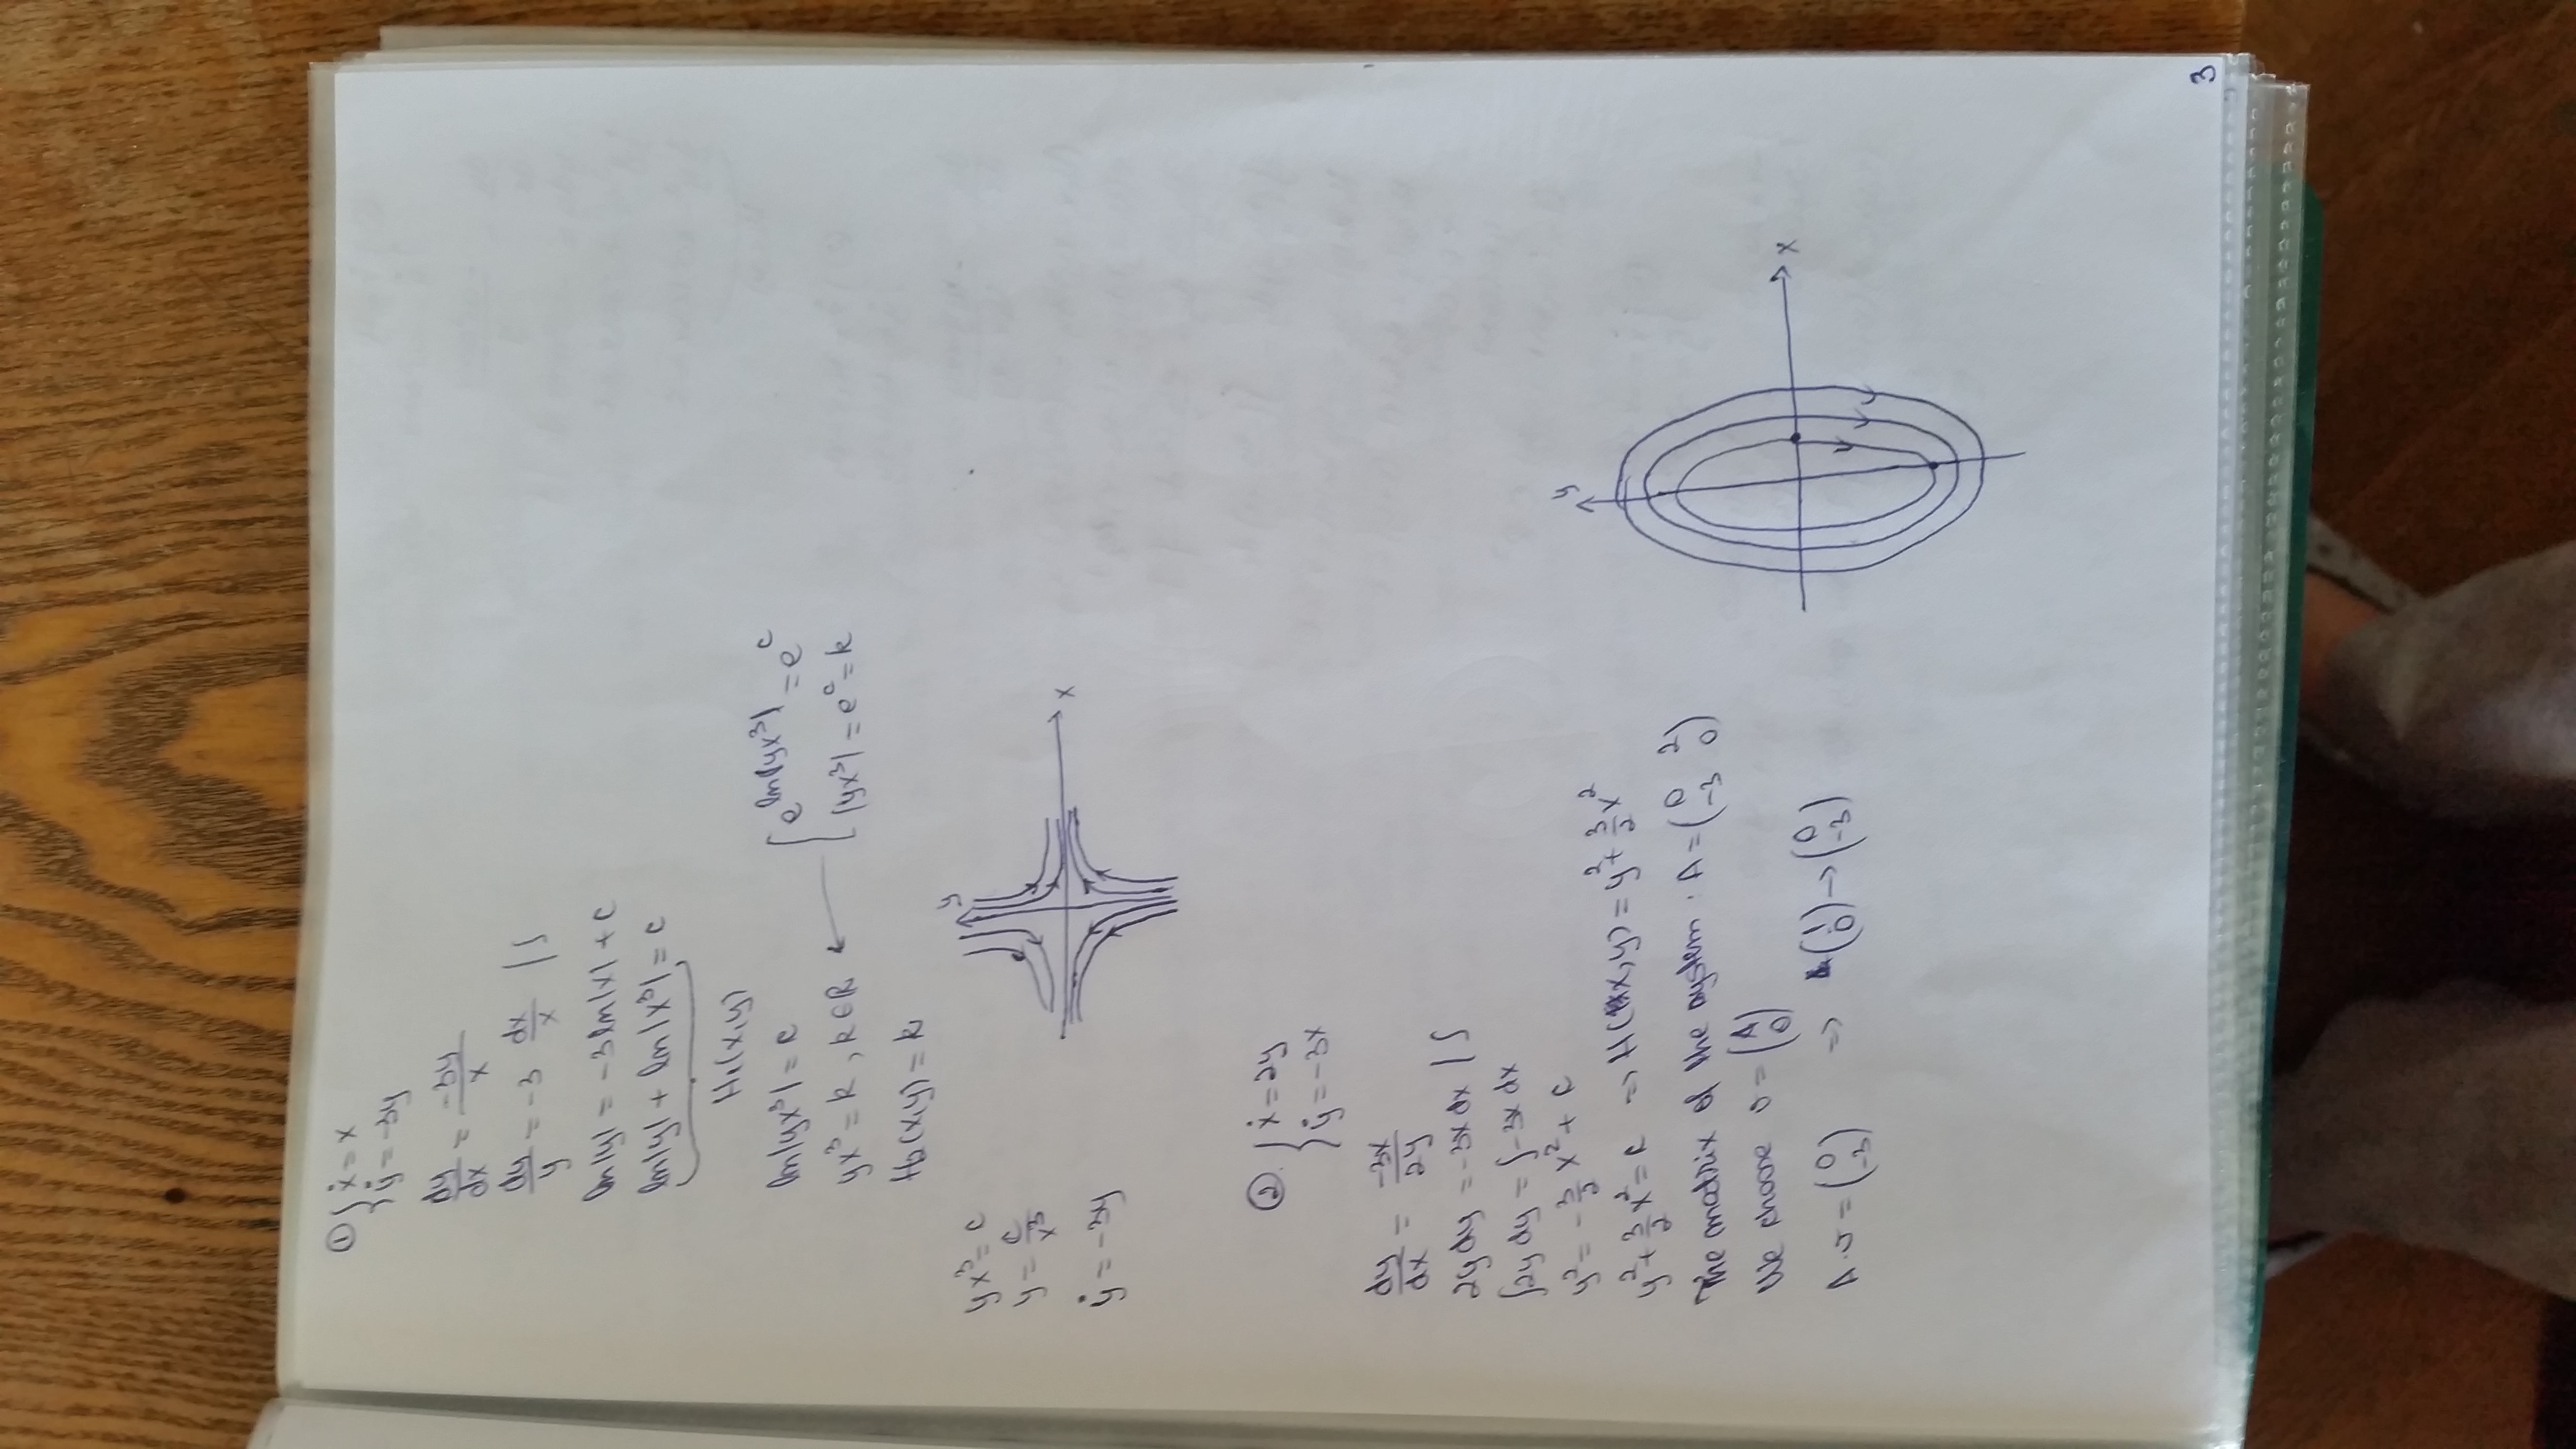 ① { ẋ = x
ẏ = -3y
dy/dx = -3y/x
dy/y = -3 dx/x | ∫
ln|y| = -3ln|x| + c
ln|y| + ln|x³| = c
H₁(x,y)
ln|yx³| = c
e^(ln|yx³|) = e^c
yx³ = k, k∈ℝ ← |yx³| = e^c = k
H₂(x,y) = k
yx³ = c
y = c/x³
ẏ = -3y
y
x
② { ẋ = 2y
ẏ = -3x
dy/dx = -3x/2y
2y dy = -3x dx | ∫
∫2y dy = ∫-3x dx
y² = -3/2 x² + c
y² + 3/2 x² = c => H(x,y) = y² + 3/2 x²
The matrix of the system: A = (0 2 ; -3 0)
We choose v = (1 ; 0)
A·v = (0 ; -3) => (1 ; 0) → (0 ; -3)
y
x
3